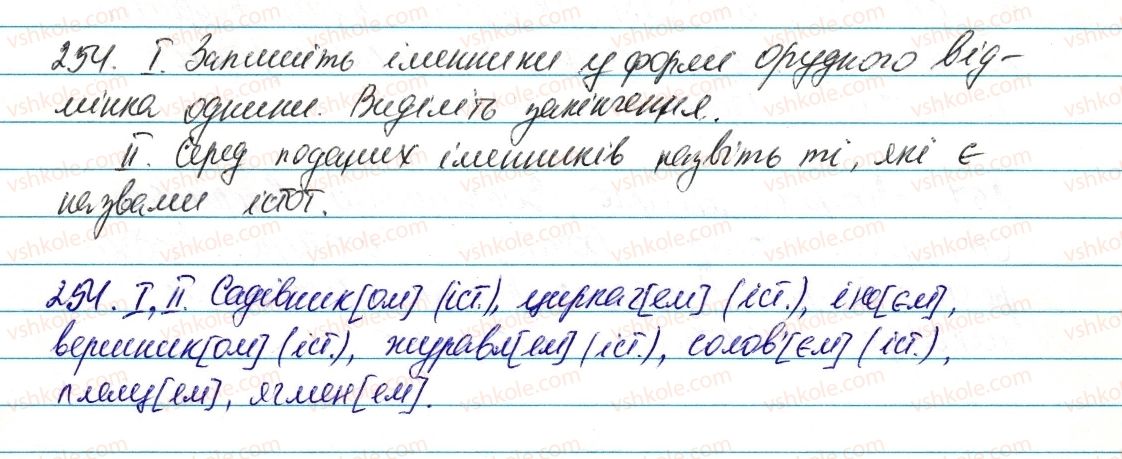 254. I. Запишіть іменники у формі орудного від-
мінка однини. Виділіть закінчення.
II. Серед поданих іменників назвіть ті, які є
назвами істот.
254. I, II. Садівник[ом] (іст.), циркач[ем] (іст.), іне[єм],
вершник[ом] (іст.), журавл[ем] (іст.), солов'[єм] (іст.),
плащ[ем], ячмен[ем].